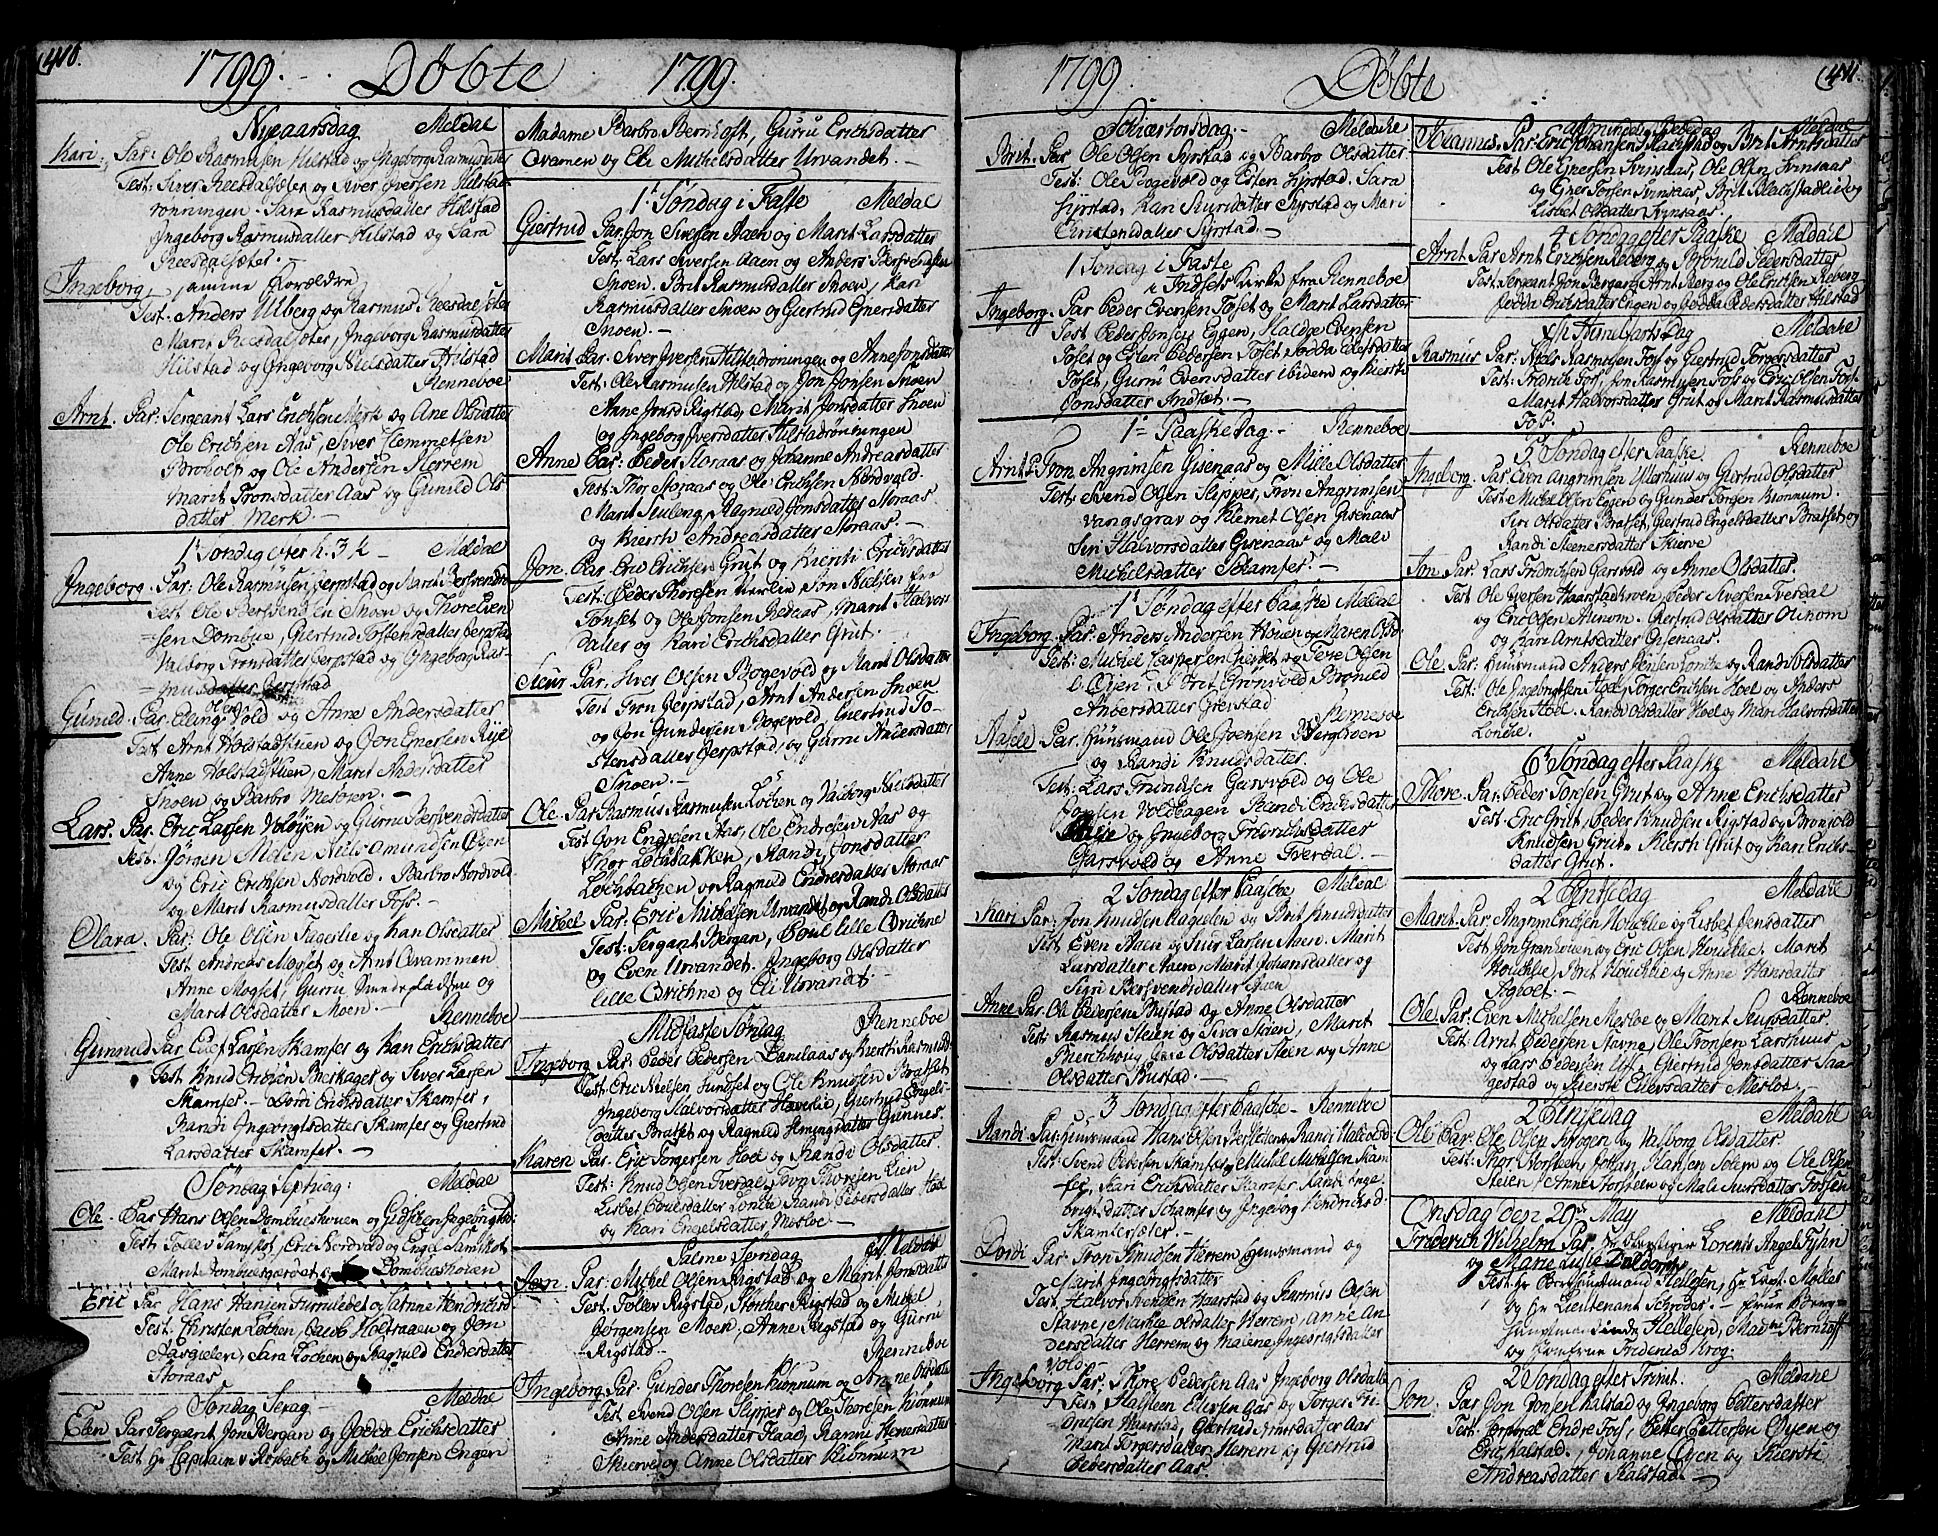 (410.
1799. Döbte 1799.
Nyeaarsdag Meldal
Kari. Par: Ole Rasmusen Hilstad og Ingeborg Rasmusdatter
Test: Siver Reesdalsæter og Siver Iversen Hilstad
rönningen. Sara Rasmusdatter Hilstad
Ingeborg Rasmusdatter Hilstad og Sara
Reesdalsæter. —
Ingeborg, samme Forældre
Test. Anders Urberg og Rasmus Reesdalsæter
Marit Reesdalsæter, Ingeborg Rasmusdatter
Hilstad og Ingeborg Nielsdatter Hilstad
Renneboe
Arnt. Par: Sergeant Lars Erichsen Merk og Ane Olsdatter
Ole Erichsen Aas, Siver Hemmetsen
Broholt og Ole Andersen Herrem
Marit Tronsdatter Aas og Gunild Ols
datter Merk —
1 Söndag efter h. 3 K — Meldal
Ingeborg. Par: Ole Rasmusen Jerpstad og Marit Bersvendsd
Test Ole Bersvendsen Snoen og Thore Even
sen Dombue, Giertrud Tostensdatter Jerpstad
Valborg Tronsdatter Jerpstad og Ingeborg Ras-
musdatter Jerpstad
Gunild. Par. Eling Olsen Vold og Anne Andersdatter
Test Arnt Holstadstuen og Jon Enersen Rye
Anne Holstadstuen, Marit Andersdatter
Snoen og Barbro Mesören. —
Lars. Par. Eric Larsen Voldöyen og Gurru Bersvendsdatter
Test: Jörgen Moen Niels Amundsen Öyen
og Eric Erichsen Nordvold. Barbro Nordvold
og Marit Rasmusdatter Foss. —
Clara. Par: Ole Olsen Fagerlie og Kari Olsdatter
Test Andreas Mogset og Arnt Qvammen
Anne Mogset, Gurru og
Marit Olsdatter Moen — Renneboe
Gunnild Par Oluf Larsen Skamfer og Kari Erichsdatter
Test Knud Buskages og Siver Larsen
Skamfer. — Dordi Erichsdatter Skamfer,
Randi Ingebrigtsdatter Skamfer og Giertrud
Larsdatter Skamfer. —
Söndag Septuag: Meldal
Ole. Par Hans Olsen Dombueshouen og Gidsken Ingebrigtsd:
Test Tollev Samskot, Eric Nordvold og Enga Samskot
Marit Dombuesgierdet og Dombueshoven
Eric Par Hans Hansen og Anne Hendrichsd
Test. Christen Löchen, Jacob Holtraaen og Jon
Aasgielen, Sara Löchen og Ragnild Endresdatter
Storaas
Söndag Sexag: — Meldal
Elen Par Sergeant Jon Bergan og Gedda Erichsdatter
Test Hr Capitain v Rosbach og Michel Jonsen Engen
Madame Barbro Bernhoft, Gurru Erichsdatter
Qvamen og Eli Michelsdatter Urvandet. —
1. Söndag i Faste Meldal
Giertrud Par Jon Siversen Aaen og Marit Larsdatter
Test: Lars Iversen Aaen og Anders Bersvendsen
Snoen. Brit Rasmusdatter Snoen, Kari
Rasmusdatter Snoen og Giertrud Enersdatter
Snoen. —
Marit Par: Siver Iversen Hilstadrönningen og Anne Jonsdatter
Test: Ole Rasmusen Hilstad og Jon Jonsen Snoen
Anne Jonsd Rigstad, Marit Jonsdatter Snoen
og Ingeborg Iversdatter Hilstadrönningen
Anne Par: Peder Storaas og Johanne Andreasdatter
Test: Thor Storaas og Ole Erichsen Nordvold
Marit Steuleng, Ragnild Jonsdatter Storaas
og Kiersti Andreasdatter Storaas. —
Jon. Par. Eric Erichsen Grut og Kiersti Erichsdatter
Test: Peder Thoresen Jon Nielsen fra
Tönset og Ole Jonsen Redaas, Marit Halvors
datter og Kari Erichsdatter Grut.
Siur Par. Siver Olsen Bogevold og Marit Olsdatter
Test Tron Jerpstad, Arnt Andersen Snoen
og Jon Gundersen Bogevold, Giertrud To-
stensdatter Jerpstad, og Gurru Andersdatter
Snoen. —
Ole. Par Rasmus Rasmusen Löchen og Valborg Nielsdatter
Test Jon Endresen Aas, Ole Endresen Aas og
Thor Löchbakken, Randi Jonsdatter
Löchbachen og Ragnild Endresdatter Storaas
Michel Par. Eric Michelsen Urvandet og Randi Olsdatter
Test: Sergant Bergan, Poul lille Qvichne
og Even Urvandet. Ingeborg Olsdatter
lille Qvichne og Eli Urvandet. —
Midfaste Söndag Renneboe
Ingeborg Par: Peder Pedersen Danelaas og Kiersti Rasmusd
Test: Eric Nielsen Sundset og Ole Knudsen Bratset
Ingeborg Halvorsdatter Haverlie, Giertrud Engels-
datter Bratset og Ragnild Hemingsdatter Gunnes
Karen Par. Eric Torgersen Hoel og Randi Olsdatter
Test: Knud Olsen Tverdal, Jon Thoresen Lien
Lisbet Poulsdatter Lonke, Randi Pedersdatter Hoel
og Kari Engelsdatter Mosloe —
Palme Söndag Meldal
Jon. Par: Michel Olsen Rigstad og Marit Jonsdatter
Test. Tollev Rigstad, Störcher Rigstad og Michel
Jörgensen Moen, Anne Rigstad og Gurru
Rigstad — Renneboe
Ingeborg Par. Gunder Thoresen Kiönnum og Anne Olsdatter
Test Svend Olsen Slipper og Ole Thoresen Kiönnum
Anne Andersdatter Flaae, Ranne Henersdatter
Skierve og Anne Olsdatter Kiönnum
1799 Döbte (411.
Schiertorsdag. — Meldahl
Brit. Par Ole Olsen Syrstad og Barbro Olsdatter
Test: Ole Bogevold og Esten Syrstad. Sara
Syrstad, Kari Siursdatter Syrstad og Mari
Christensdatter Syrstad. —
1 Söndag i Faste
i Indsets Kirke fra Renneboe
Ingeborg. Par Peder Evensen Foset og Marit Larsdatter
Test Peder Jonsen Eggen, Haldoe Evensen
Foset og Esten Pedersen Foset, Gedda Pedersdatter
Foset, Gurru Evensdatter ibidem og Kiersti
Jonsdatter Indset. —
1te Paaskedag. — Renneboe
Arnt P. Tron Angrimsen Gisenaas og Mille Olsdatter
Test: Svend Olsen Slipper, Tron Angrimsen
Vangsgrav og Klemet Olsen Gisenaas
Siri Halvorsdatter Gisenaas og Male
Michelsdatter Skamfer. —
1 Söndag efter Paaske Meldal
Ingeborg. Par. Anders Andersen Houen og Karen Olsd
Test: Michel Caspersen Gierdet og Tore Olsen
Öyen, Brit Grönvold Bronild
Andersdatter Grefstad
Renneboe
Aasele Par. Huusmand Ole Joensen Berghoen
og Randi Knudsdatter.
Test: Lars Fredrichsen Garsvold og Ole
Joensen Voldhagen Randi Erichsdatter
og Ingeborg Fredrichsdatter
Garsvold og Anne Tverdal. —
2 Söndag efter Paaske Meldal
Kari Par. Jon Knudsen Aagielen og Brit Knudsdatter
Test Even Aaen og Siur Larsen Aaen. Marit
Larsdatter Aaen, Marit Johansdatter og
Sigri Bersvendsdatter Aaen
Anne Par Ole Pedersen Bustad og Anne Olsdatter
Test: Rasmus Steen og Siver Steen, Marit
Olsdatter Steen og Anne
Olsdatter Bustad. —
3 Söndag efter Paaske — Renneboe
Randi Par: Huusmand Hans Olsen Berslettens Randi Halvorsd
Test: Svend Pedersen Skamfer og Michel Michelsen Skam
fer, Kari Erichsdatter Skamfer Randi Inge-
brigtsdatter Schamfer og Ingeborg Hendrichsd
Skamfersæter. —
Dordi Par. Tron Knudsen Herrem Huusmand og
Marit Ingebrigtsdatter
Test Halvor Svendsen Haarstad og Rasmus Olsen
Stavne, Marhe Olsdatter Herrem, Anne An-
dersdatter Herrem og Malene Ingebrigtsdatter
Vold —
Ingeborg Par: Thore Pedersen Aas Ingeborg Olsdatter
Test Halsteen Elivsen Aas og Torger Fri-
drichsen Haarstad, Giertrud Arntsdatter Aas
Marit Torgersdatter Herrem og Giertrud
Pedersdatter Aas.
almindelig Bededag Meldal
Joeannus. Par. Eric Johansen Blachstad og Brit Arntsdatter
Test Ole Enersen Svinsaas, Ole Olsen Svinsaas
og Ener Torsen Svinsaas, Brit Blechstadlie og
Lisbet Olsdatter Svinsaas.
4 Söndag efter Paaske Meldahl
Arnt Par Arnt Erichsen Reberg og Bronild Pedersdatter
Test: Sergeant Jon Bergan, Arnt Berg og Ole Erichsen Reberg
Gedda Erichsdatter Engen og Gedda Pedersdatter Hilstad
Christi Himelfarts Dag Meldahl
Rasmus Par: Niels Rasmusen Foss og Giertrud Torgersdatter
Test: Fridrich Foss, Jon Rasmusen Foss og Eric Olsen Fort
Marit Halvorsdatter Grut og Marit Rasmusdatter
Foss.
5 Söndag efter Paaske. Renneboe
Ingeborg. Par Even Angrimsen Ulleshuus og Giertrud Olsdatter
Test Michel Olsen Eggen og Gunder Torsen Kiönnum.
Siri Olsdatter Bratset, Giertrud Engelsdatter Bratset og
Randi Steenersdatter Skierve
Jon Par. Lars Fridrichsen Garsvold og Anne Olsdatter.
Test Ole Giersen Haarstadkroen Peder Siversen Tverdal
og Eric Olsen Alinom. Giertrud Olsdatter Olinom
og Kari Arntsdatter Gisenaas.
Ole Par: Huusmand Anders Jensen Lonke og Randi Olsdatter
Test: Ole Ingebrigtsen Hoel, Torger Erichsen Hoel og Anders
Erichsen Hoel. Randi Olsdatter Hoel og Mari Halvorsdatter
Lonke.
6te Söndag efter Paaske Meldahl
Thore. Par Peder Jonsen Grut og Anne Erichsdatter
Test: Eric Grut, Peder Knudsen Rigstad og Bronvold
Knudsen Grut. Kiersti Grut og Kari Erichs-
datter Grut.
2 Pintsedag Meldahl
Marit. Par: Angrym Erichsen Houchlie og Lisbet Jensdatter.
Test Jon Granmoen og Eric Olsen Houchlie, Marit
Houchlie, Brit Houchlie og Anne Hansdatter
Aigholt. — Renneboe
Ole Par: Even Michelsen Mosloe og Marit Siursdatter.
Test: Arnt Pedersen Stavne, Ole Tronsen Larshuus
og Lars Pedersen Uf. Giertrud Jonsdatter Saa-
gestad og Kiersti Eilersdatter Mosloe.
2 Pinsedag Meldahl
Ole Par. Ole Olsen Krogen og Valborg Olsdatter.
Test: Thor Storsteen Johan Hansen Solem og Ole Olsen
Steien, Anne Storsteen og Mali Siursdatter Fossen
Onsdag den 29de May Meldahl
Friderich Wilhelm Par, Hr Lorents Angel Fyhn
og Marie Lucie Daldorph
Test: Hr Berghauptmand Hellesen, Hr Capt: Möller
og Hr Lieutenant Schröder. — Frue Berg-
hauptmandinde Hellesen, Madme Bernhoff
og Jomfrue Fridericia Krog.
2 Söndag efter Trinit. Meldahl
Jon. Par Jon Jonsen Kalstad og Ingeborg Pettersdatter
Test: Endre Foss, Petter Pettersen Öyen og
Eric Kalstad, Johanne Öyen og Kiersti
Andreasdatter Kalstad. —